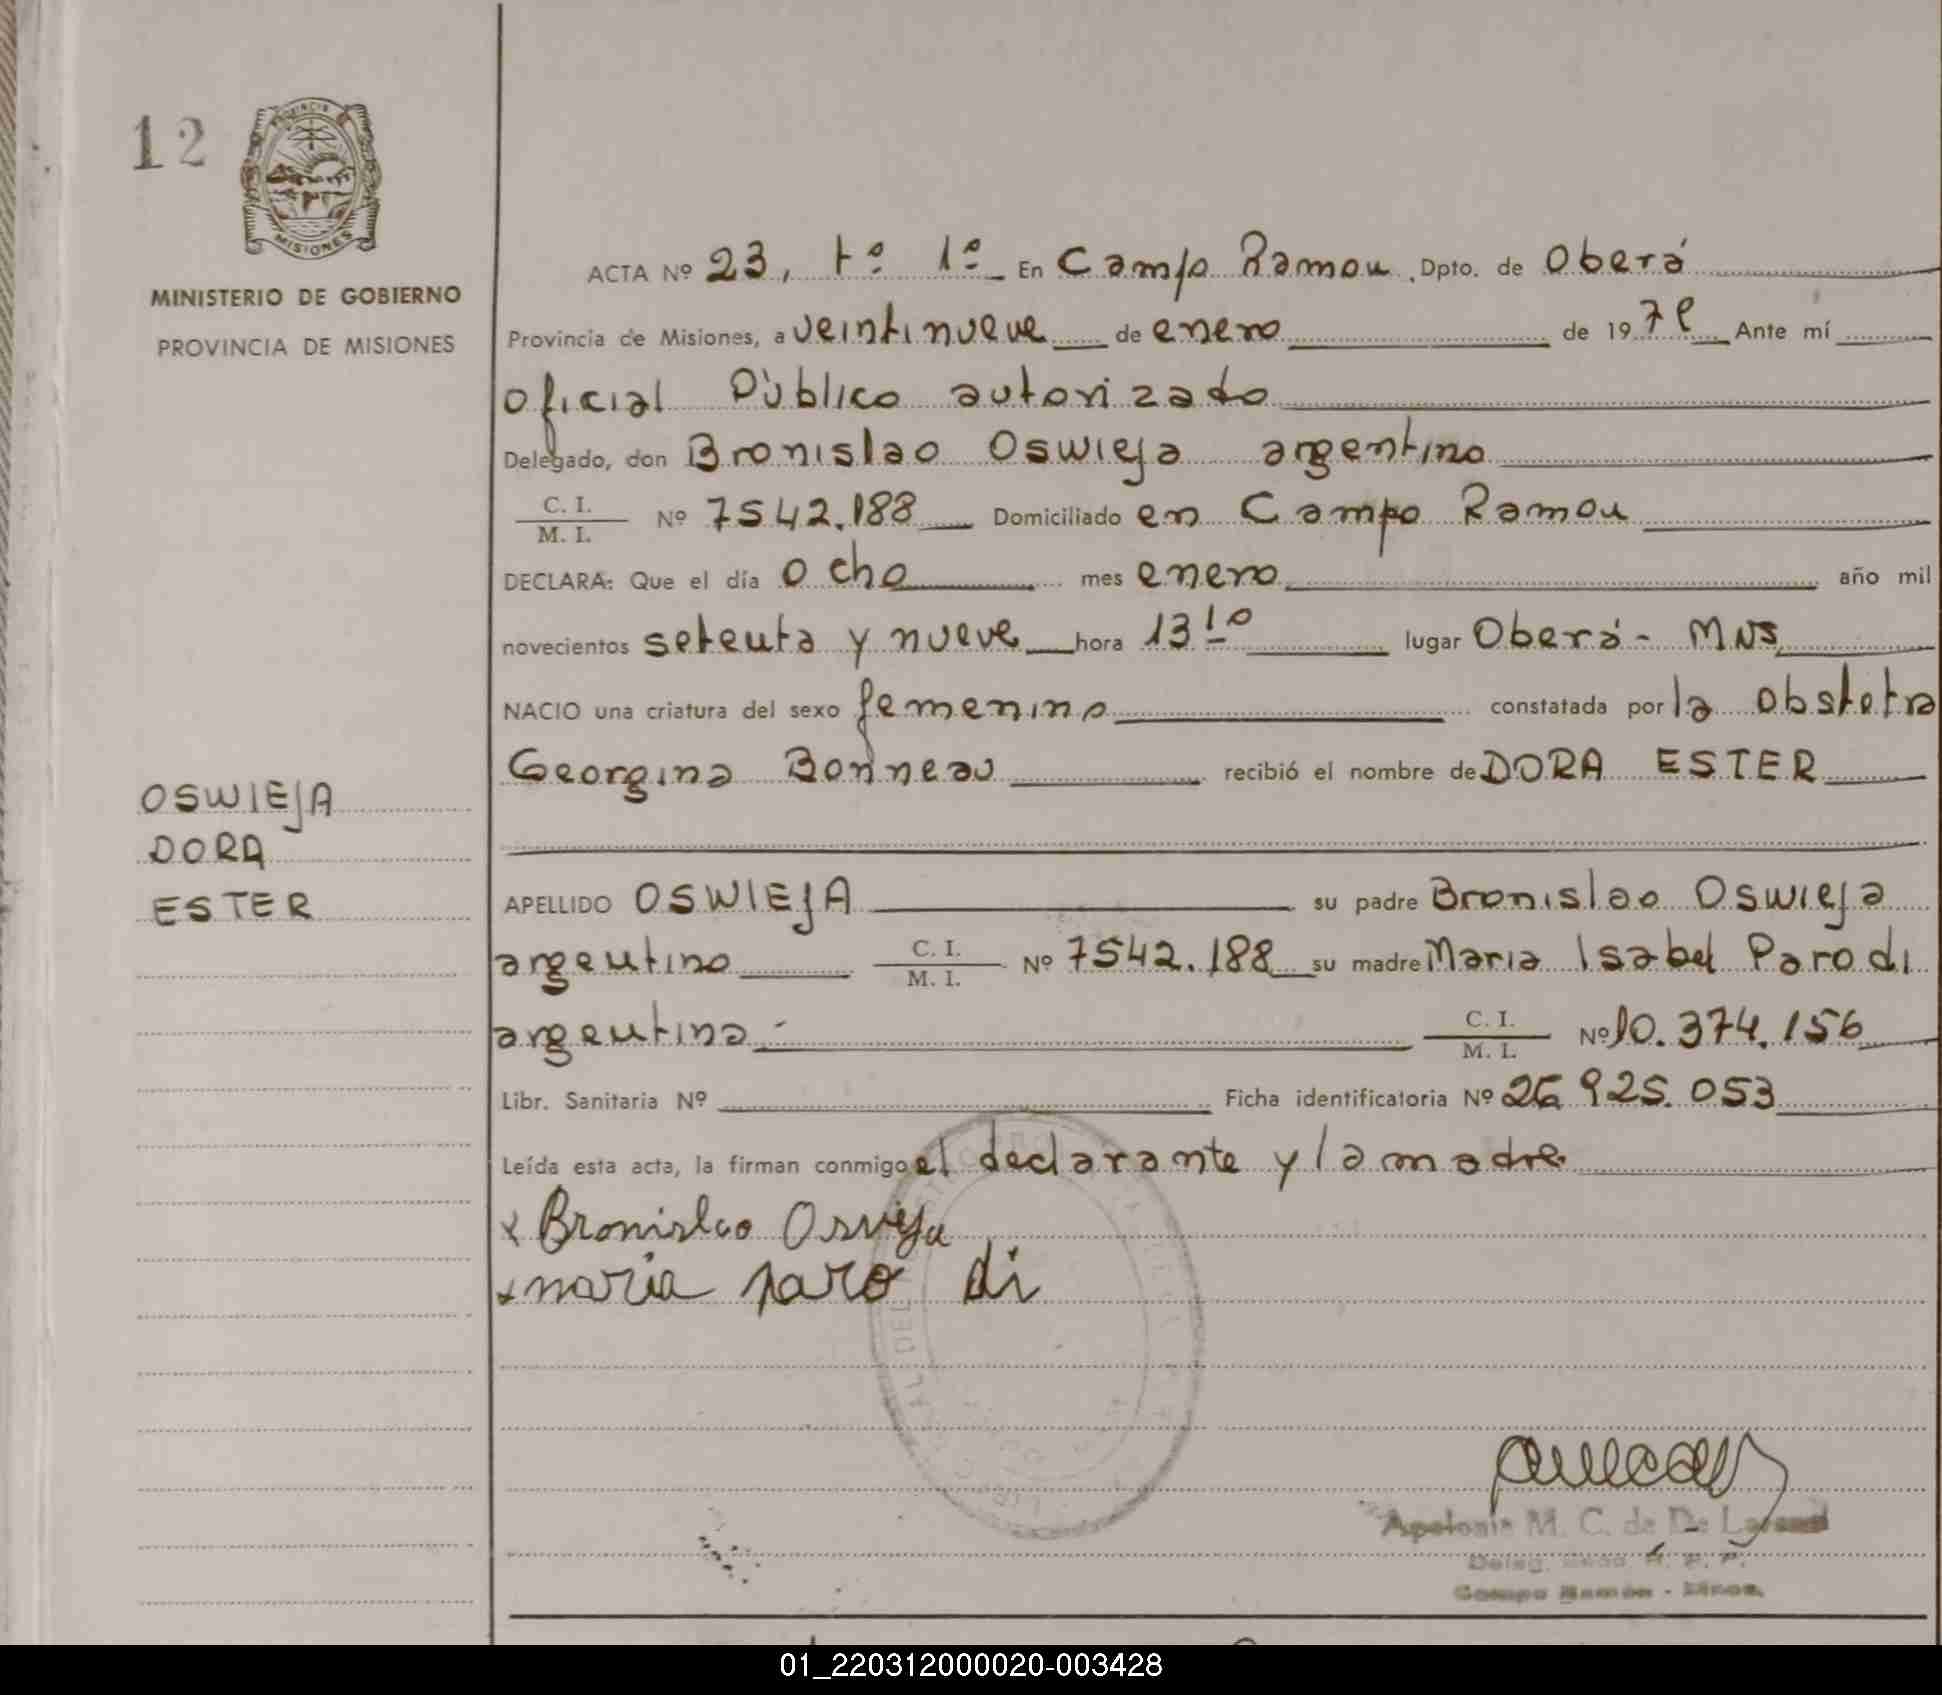 12
PROVINCIA
MISIONES
MINISTERIO DE GOBIERNO
PROVINCIA DE MISIONES
ACTA Nº 23, tº 1º En Campo Ramon, Dpto. de Oberá
Provincia de Misiones, a veintinueve de enero de 1979 Ante mí
Oficial Público autorizado
Delegado, don Bronislao Oswieja argentino
C. I.
M. I. Nº 7542.188 Domiciliado en Campo Ramon
DECLARA: Que el día ocho mes enero año mil
novecientos setenta y nueve hora 13 10 lugar Oberá - MNS
NACIO una criatura del sexo femenino constatada por la obstetra
Georgina Bonneau recibió el nombre de DORA ESTER
OSWIEJA
DORA
ESTER
APELLIDO OSWIEJA su padre Bronislao Oswieja
argentino C. I. M. I. Nº 7542.188 su madre Maria Isabel Parodi
argentina - C. I. M. I. Nº 10.374.156
Libr. Sanitaria Nº Ficha identificatoria Nº 26.925.053
Leída esta acta, la firman conmigo el declarante y la madre.
x Bronislao Osvieja
x maria paro di
Apolonia M. C. de De
Campo Ramón - Mnes.
01_220312000020-003428